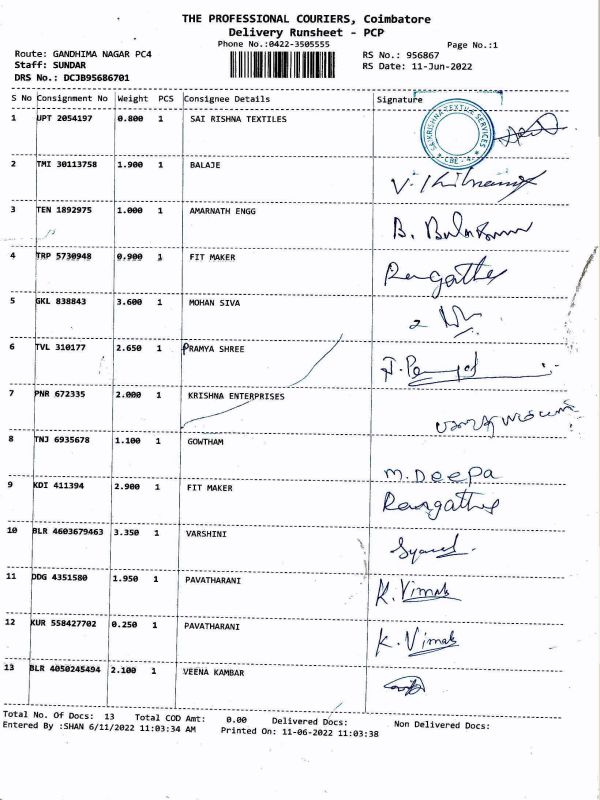 THE PROFESSIONAL COURIERS, Coimbatore
Delivery Runsheet - PCP
Phone No.:0422-3505555
Page No.:1
Route: GANDHIMA NAGAR PC4
RS No.: 956867
Staff: SUNDAR
RS Date: 11-Jun-2022
DRS No.: DCJB95686701
S No Consignment No Weight PCS Consignee Details Signature
1 UPT 2054197 0.800 1 SAI RISHNA TEXTILES
2 TMI 30113758 1.900 1 BALAJE
3 TEN 1892975 1.000 1 AMARNATH ENGG
4 TRP 5730948 0.900 1 FIT MAKER
5 GKL 838843 3.600 1 MOHAN SIVA
6 TVL 310177 2.650 1 PRAMYA SHREE
7 PNR 672335 2.000 1 KRISHNA ENTERPRISES
8 TNJ 6935678 1.100 1 GOWTHAM M. DEEPA
9 KDI 411394 2.900 1 FIT MAKER
10 BLR 4603679463 3.350 1 VARSHINI
11 DDG 4351580 1.950 1 PAVATHARANI K. Vimals
12 KUR 558427702 0.250 1 PAVATHARANI K. Vimals
13 BLR 4050245494 2.100 1 VEENA KAMBAR
Total No. Of Docs: 13 Total COD Amt: 0.00 Delivered Docs: Non Delivered Docs:
Entered By :SHAN 6/11/2022 11:03:34 AM Printed On: 11-06-2022 11:03:38